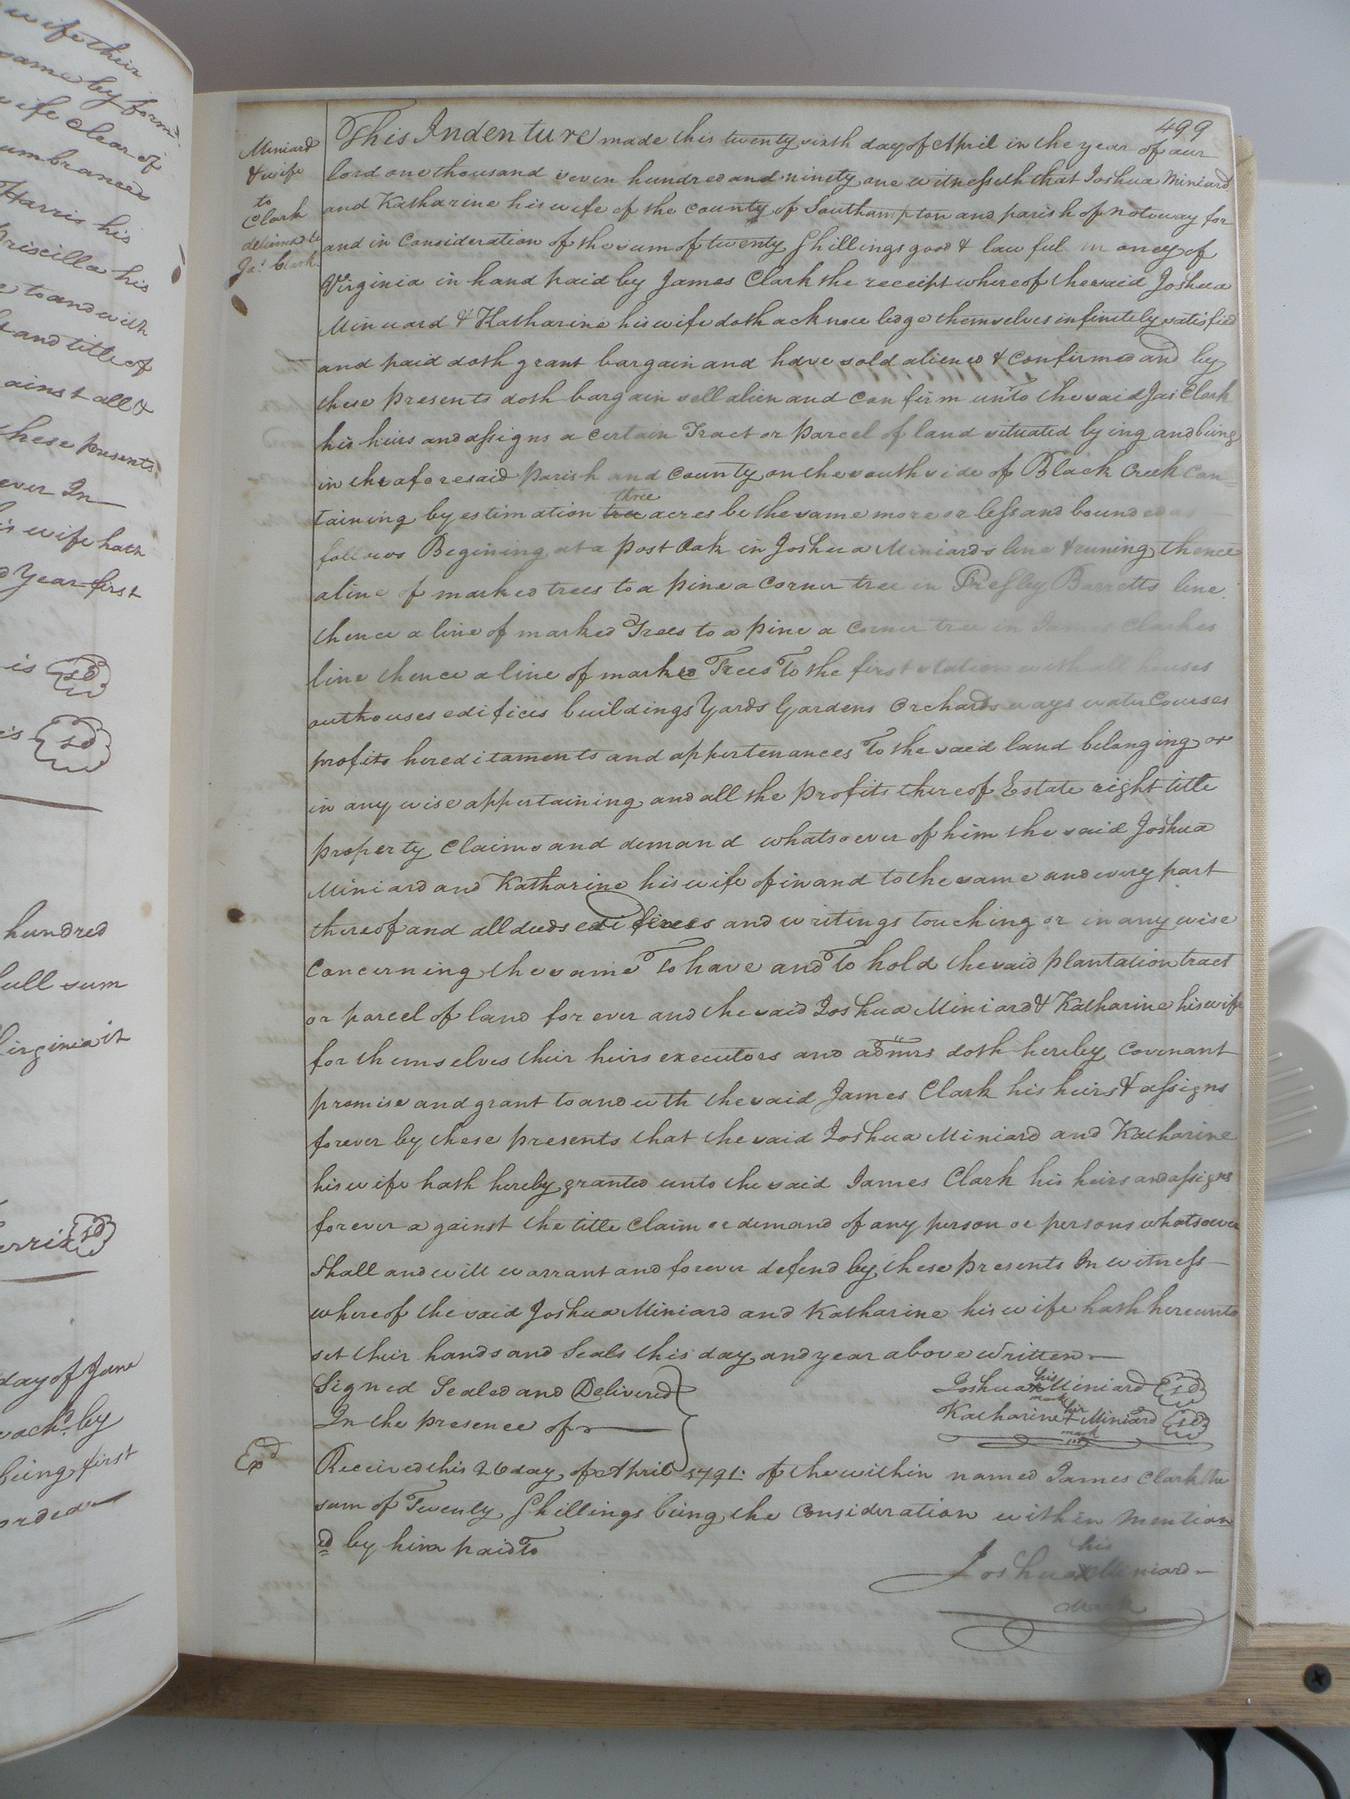 wife their
same by form
wife clear of
umbrances
Harris his
Priscilla his
to and with
and title of
ainst all &
these presents
ever In
is wife hath
d Year first
is sd
is sd
hundred
ull sum
Virginia it
erris sd
day of June
by
being first
orded
499
Miniard
& wife
to
Clark
delivered to
Jas. Clark
This Indenture made this twenty sixth day of April in the year of our
lord one thousand seven hundred and ninety one witnesseth that Joshua Miniard
and Katharine his wife of the county of Southampton and parish of notoway for
and in Consideration of the sum of twenty Shillings good & lawful money of
Virginia in hand paid by James Clark the receipt whereof the said Joshua
Miniard & Katharine his wife doth acknowledge themselves infinitely satisfied
and paid doth grant bargain and have sold aliened & confirmed and by
these presents doth bargain sell alien and confirm unto the said Jas. Clark
his heirs and assigns a certain Tract or parcel of land situated lying and being
in the aforesaid parish and county on the south side of Black Creek Con=
taining by estimation tree three acres be the same more or less and bounded as
follows Begining at a post Oak in Joshua Miniards line & runing thence
a line of marked trees to a pine a corner tree in Presley Barretts line
thence a line of marked Trees to a pine a corner tree in James Clarkes
line thence a line of marked Trees To the first station with all houses
outhouses edifices buildings Yards Gardens Orchards ways water Courses
profits hereditaments and appertenances To the said land belonging or
in any wise appertaining and all the profits thereof Estate right title
property Claims and demand whatsoever of him the said Joshua
Miniard and Katharine his wife of in and to the same and every part
thereof and all deeds edifices and writings touching or in any wise
concerning the same To have and To hold the said plantation tract
or parcel of land for ever and the said Joshua Miniard & Katharine his wife
for themselves their heirs executors and admrs doth hereby covenant
promise and grant to and with the said James Clark his heirs & assigns
forever by these presents that the said Joshua Miniard and Katharine
his wife hath hereby granted unto the said James Clark his heirs and assigns
forever against the title claim or demand of any person or persons whatsoever
Shall and will warrant and forever defend by these presents In witness
whereof the said Joshua Miniard and Katharine his wife hath hereunto
set their hands and Seals this day and year above written
Signed Sealed and Delivered
In the presence of
Joshua his X mark Miniard sd
Katharine her + mark Miniard sd
Exd
Received this 26 day of April 1791: of the within named James Clark the
sum of Twenty Shillings being the consideration within mention
ed by him paid To
Joshua his X mark Miniard